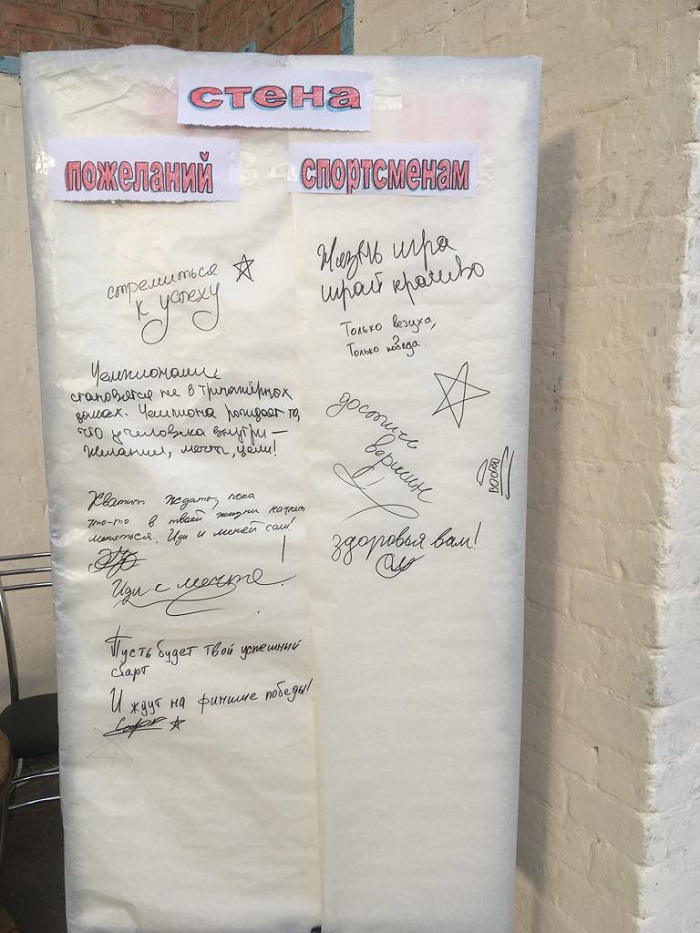 стена
пожеланий
спортсменам
стремиться
к успеху
Чемпионами
становятся не в тренажёрных
залах. Чемпиона рождает то,
что у человека внутри –
желания, мечты, цели!
Хватит ждать, пока
что-то в твоей жизни начнет
меняться. Иди и меняй сам!
Иди к мечте!
Пусть будет твой успешный
старт
И ждут на финише победы!
Жизнь игра
играй красиво
Только везуха,
Только победа.
достичь
вершин
здоровья вам!